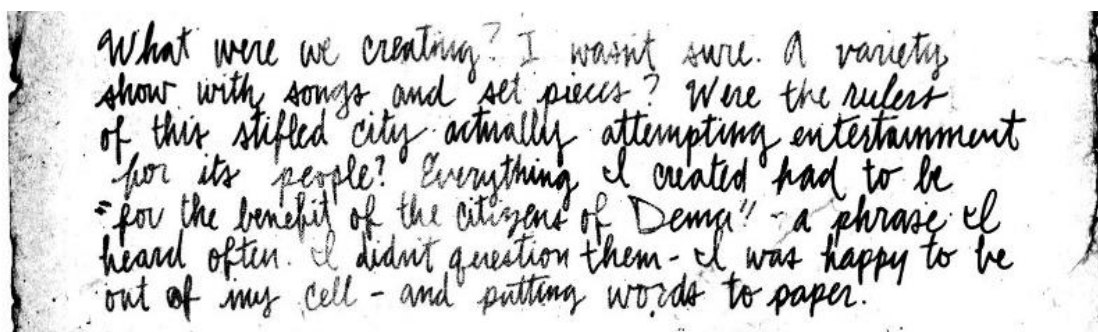 What were we creating? I wasn't sure. A variety
show with songs and set pieces? Were the rulers
of this stifled city actually attempting entertainment
for its people? Everything I created had to be
"for the benefit of the citizens of Dema" - a phrase I
heard often. I didn't question them - I was happy to be
out of my cell - and putting words to paper.